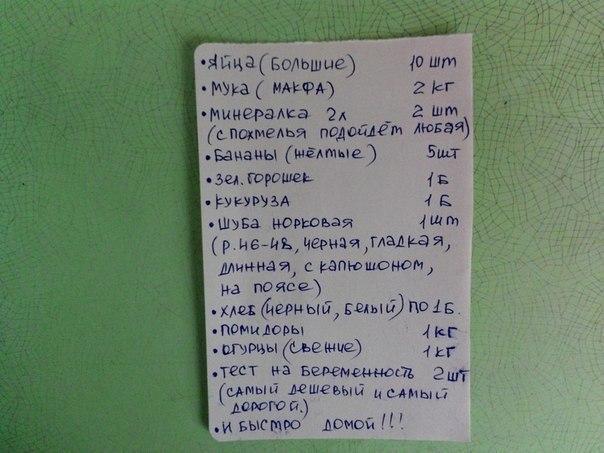 • ЯЙЦА (БОЛЬШИЕ) 10 ШТ
• МУКА (МАКФА) 2 КГ
• МИНЕРАЛКА 2Л 2 ШТ
(С ПОХМЕЛЬЯ ПОДОЙДЁТ ЛЮБАЯ)
• БАНАНЫ (ЖЁЛТЫЕ) 5ШТ
• ЗЕЛ. ГОРОШЕК 1 Б
• КУКУРУЗА 1 Б
• ШУБА НОРКОВАЯ 1 ШТ
(Р.46-48, ЧЕРНАЯ, ГЛАДКАЯ,
ДЛИННАЯ, С КАПЮШОНОМ,
НА ПОЯСЕ)
• ХЛЕБ (ЧЕРНЫЙ, БЕЛЫЙ) ПО 1Б.
• ПОМИДОРЫ 1 КГ
• ОГУРЦЫ (СВЕЖИЕ) 1 КГ
• ТЕСТ НА БЕРЕМЕННОСТЬ 2 ШТ
(САМЫЙ ДЕШЕВЫЙ И САМЫЙ
ДОРОГОЙ.)
• И БЫСТРО ДОМОЙ!!!